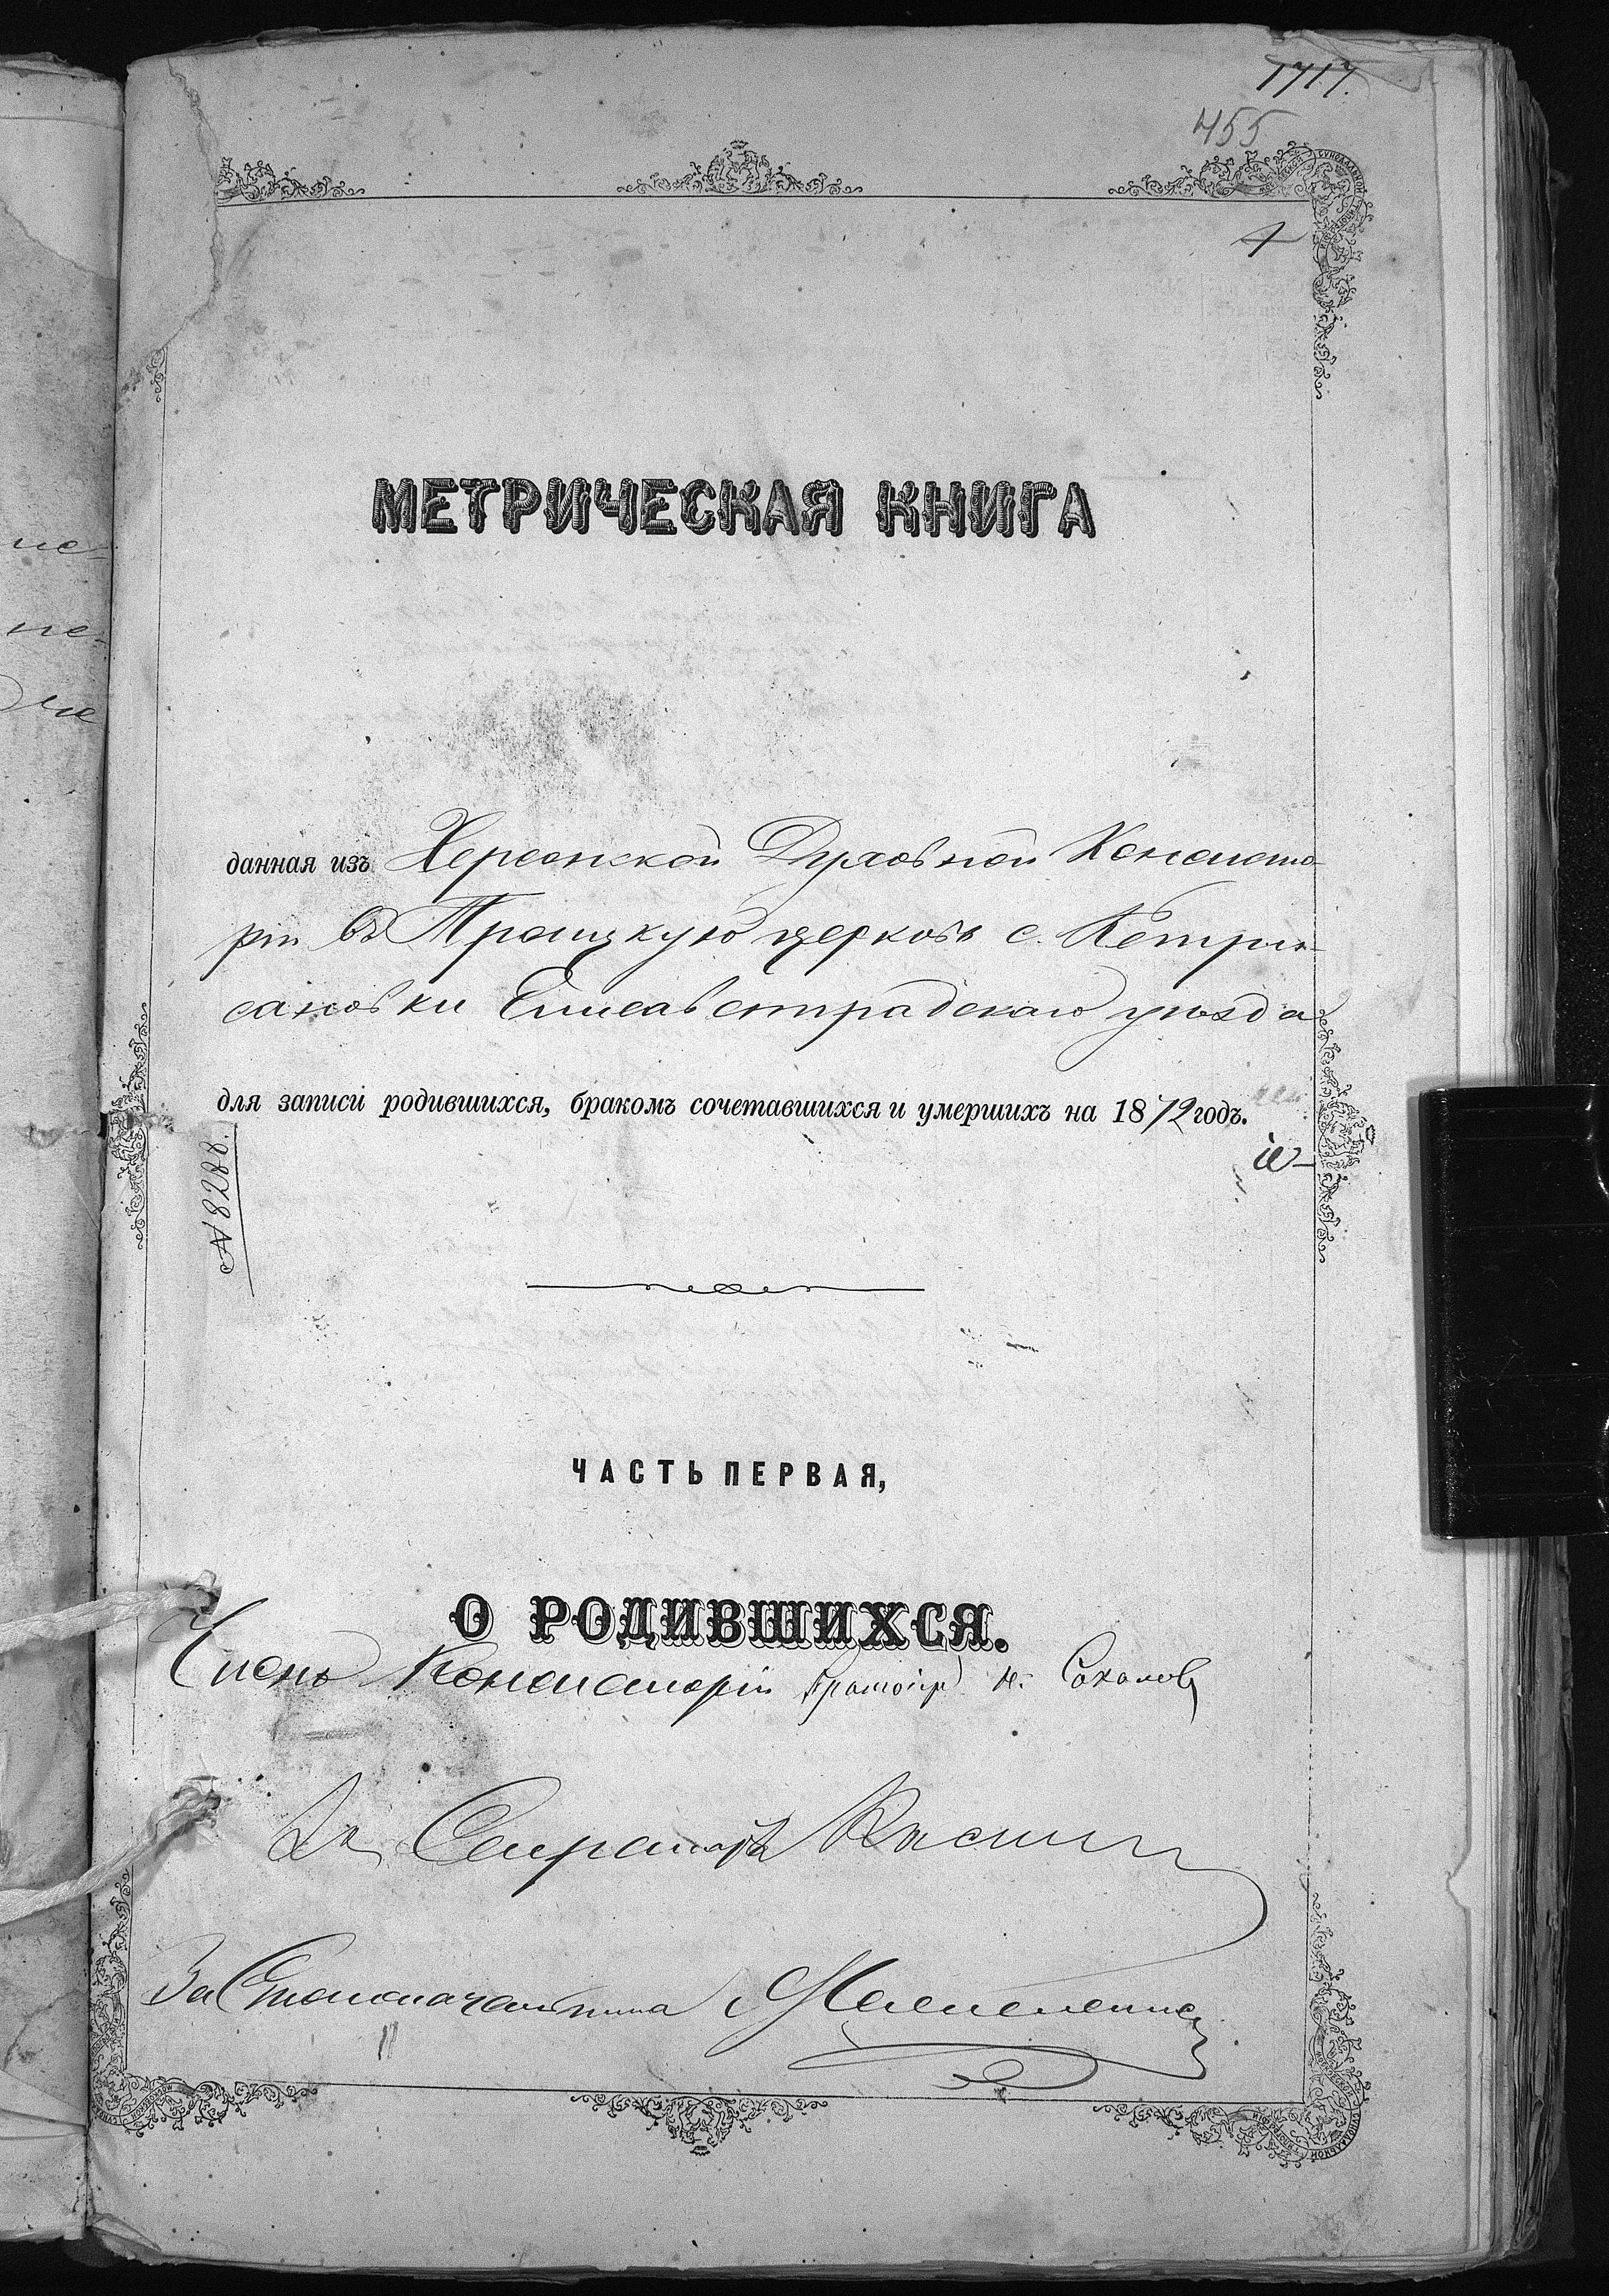 1717.
455
МЕТРИЧЕСКАЯ КНИГА
данная изъ Херсонской Духовной Консисто-
ріи въ Троицкую церковь с. Кетри-
сановки Елисаветградскаго уѣзда
для записи родившихся, бракомъ сочетавшихся и умершихъ на 1872 годъ.
№ 8288.
ЧАСТЬ ПЕРВАЯ,
О РОДИВШИХСЯ.
Членъ Консисторіи Протоіер. Н. Соколовъ
За Секретаря
За Столоначальника